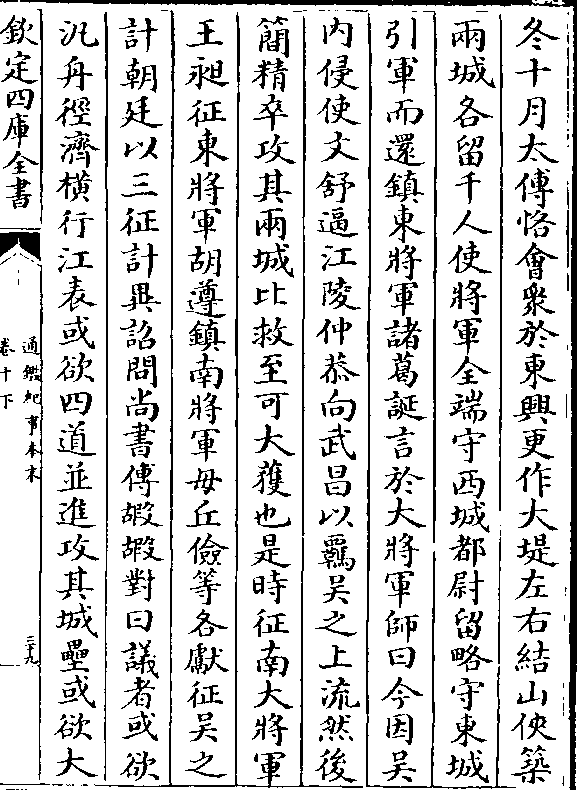 冬十月太傅恪會衆於東興更作大堤左右結山俠築
兩城各留千人使將軍全端守西城都尉留略守東城
引軍而還鎮東將軍諸葛誕言於大將軍師曰今因吳
内侵使文舒逼江陵仲恭向武昌以覊吳之上流然後
簡精卒攻其兩城比救至可大獲也是時征南大將軍
王昶征東將軍胡遵鎮南將軍毋丘儉等各獻征吳之
計朝廷以三征計異詔問尚書傅嘏嘏對曰議者或欲
汎舟徑濟橫行江表或欲四道並進攻其城壘或欲大
欽定四庫全書
通鑑紀事本末
卷十下
三十九